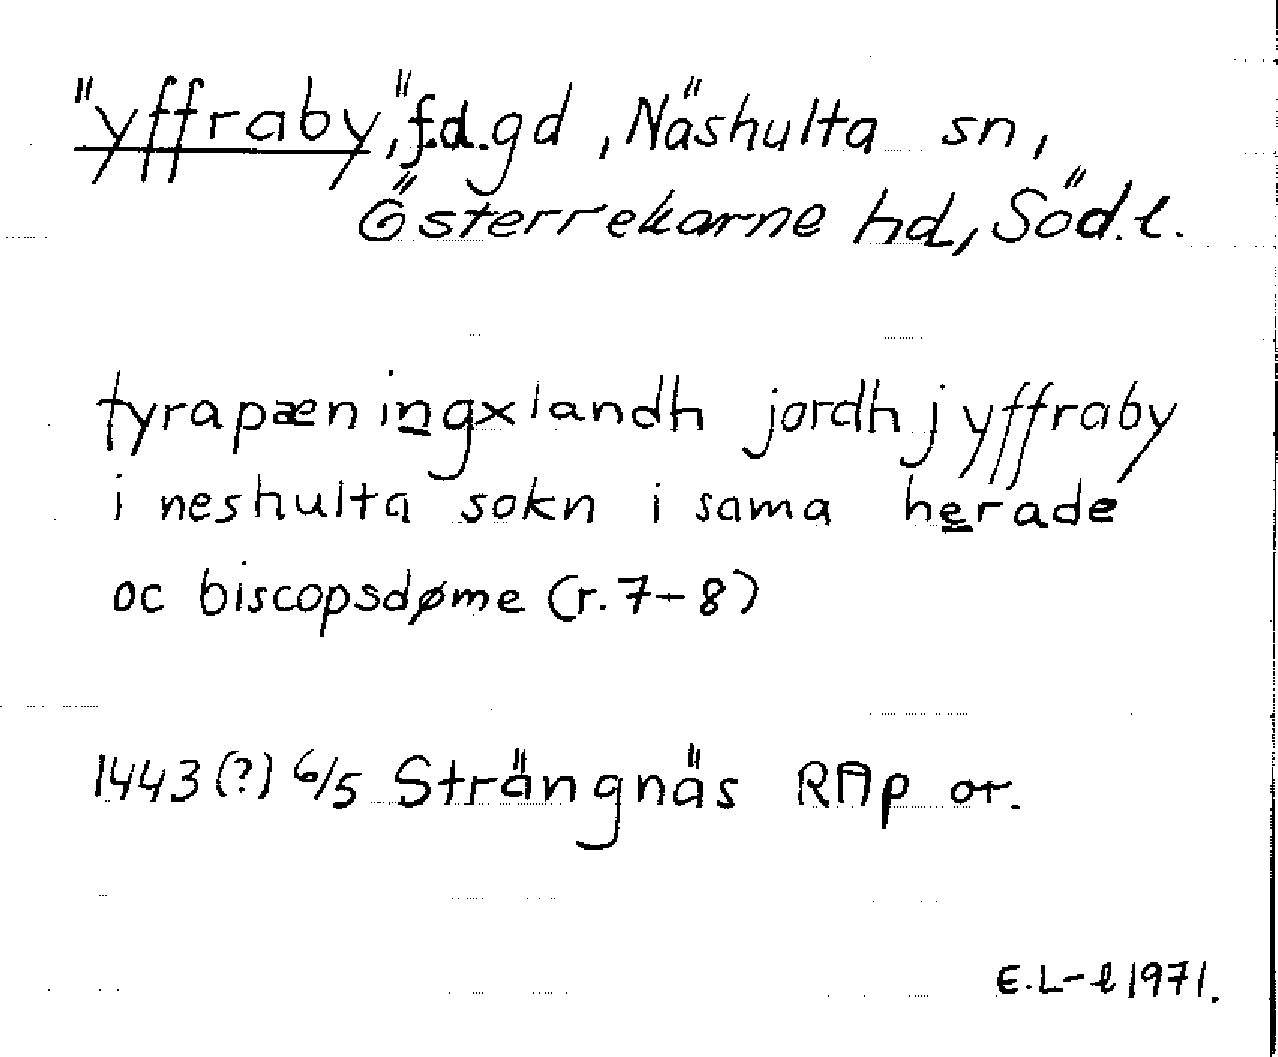 "yffraby", f.d. gd, Näshulta sn,
Österrekarne hd, Söd.l.
tyrapæningxlandh jordh j yffraby
i neshulta sokn i sama herade
oc biscopsdøme (r.7-8)
1443(?) 6/5 Strängnäs RAp or.
E.L-l 1971.